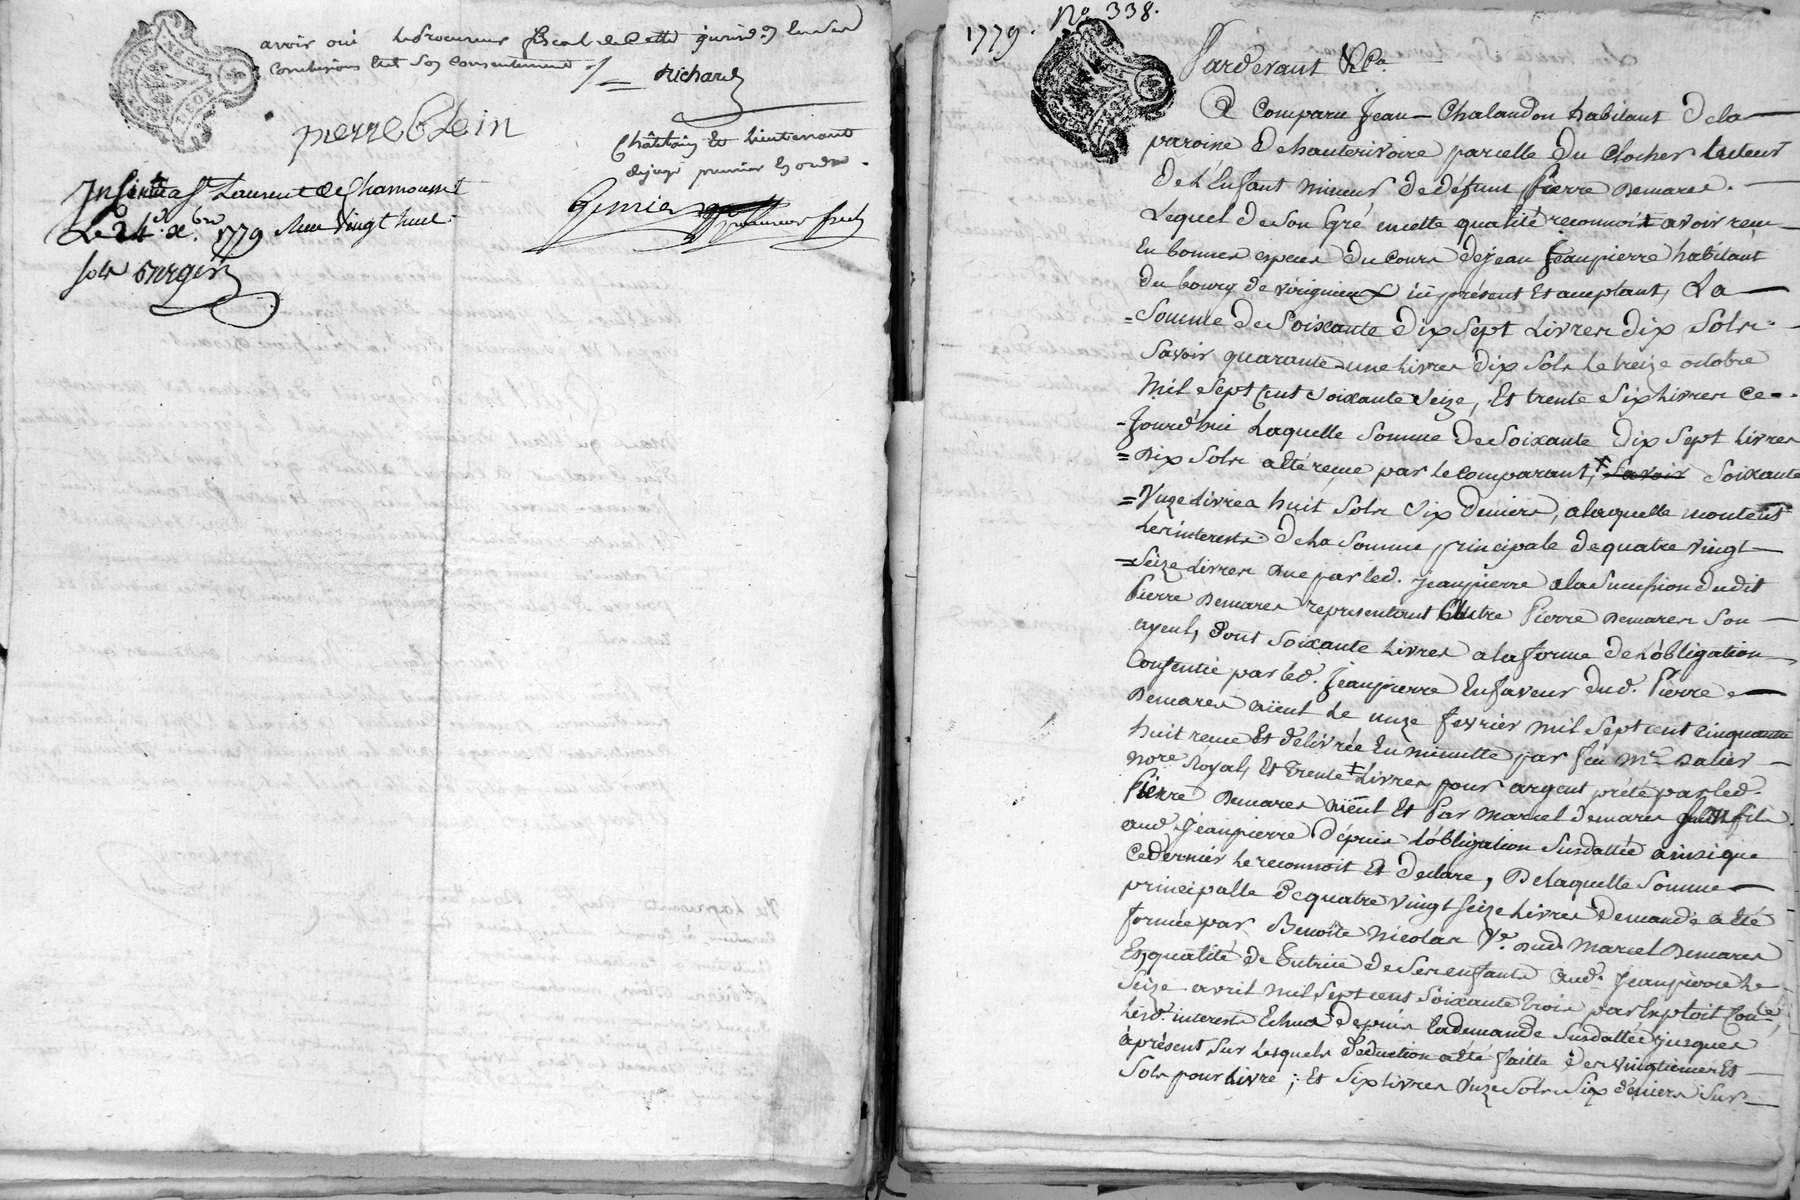 avoir oui le procureur fiscal de cette jurisd.on en ses
conclusions et son consentement ./=
Richard
pierre blein
Châtelain et lieutenant
de juge premier en ordre .
Insinué à St Laurent de Chamousset
Le 24 xbre 1779 Reçu vingt huit
sols
1779. No 338.
Pardevant &Ca
A Comparu Jean Chalandon habitant de la
paroisse de hauterivoire parcelle du Clocher tuteur
de l'Enfant mineur de défunt Pierre Demares .
Lequel de son Gré en cette qualité reconnoit avoir reçu
En bonnes especes du cours de jean Jeanpierre habitant
du bourg de virignieux icy présent et acceptant, La
=Somme de Soixante dix sept Livres dix Sols
Savoir quarante-une Livres dix sols le treize octobre
Mil sept Cent soixante seize, Et trente six Livres ce-
-Jourd'hui Laquelle somme de Soixante dix sept Livres
=Dix Sols a été reçue par le comparant, + Savoir Soixante
=Unze Livres huit sols six deniers, a laquelle montent
Les interests de la somme principale de quatre vingt
=Seize Livres due par led. Jeanpierre a la succession dudit
Pierre Demares representant autre Pierre Demares son
ayeul, dont soixante Livres a la forme de l'obligation
Consentie par led. Jeanpierre En faveur dud. Pierre
Demares aïeul le unze fevrier mil sept cent cinquante
huit reçue Et délivrée En minutte par feu Me Dalier
nore Royal, Et trente + Livres pour argent prêté par led.
Pierre Demares aïeul Et Par Marcel Demares son fils
aud. Jeanpierre depuis l'obligation susdattée ainsi que
ce dernier le reconnoit Et declare, De laquelle Somme
principalle de quatre vingt seize Livres demande a été
formée par Benoîte Nicolas Ve. dud. Marcel Demares
En qualité de Tutrice de ses enfants aud. Jeanpierre le
Seize avril mil sept cens soixante trois par Exploit Conlé
Lesd. interests Echus depuis la demande susdattée jusques
à présent sur lesquels déduction a été faitte des vingtiemes Et
Sols pour Livre ; Et six Livres unze sols six deniers sur